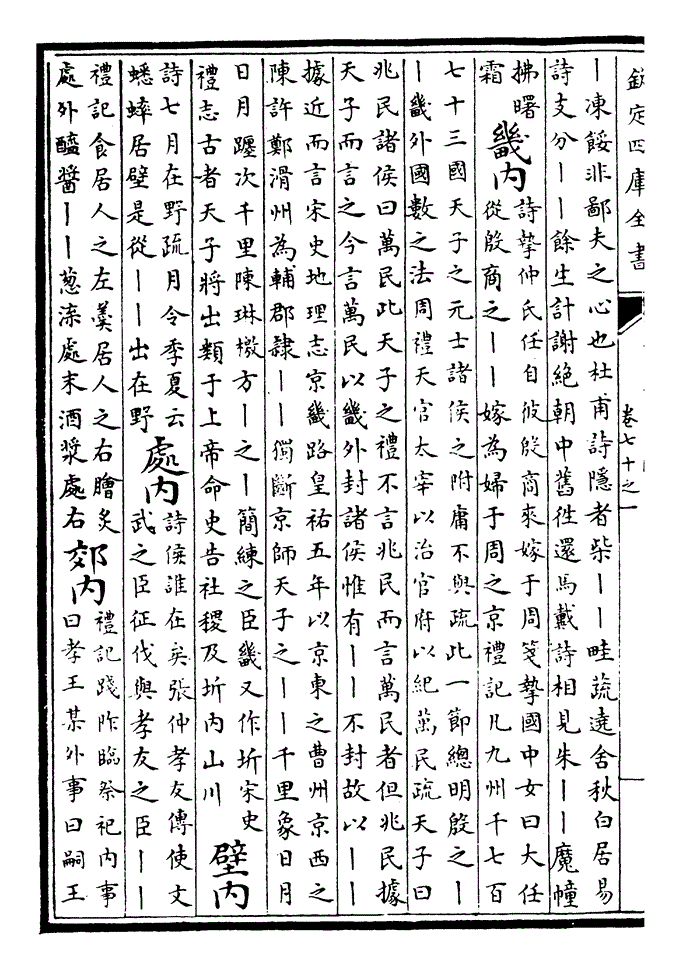 欽定四庫全書
卷七十之一
丨凍餒非鄙夫之心也杜甫詩隱者柴丨丨畦蔬遶舍秋白居易
詩支分丨丨餘生計謝絶朝中舊徃還馬戴詩相見朱丨丨麾幢
拂曙
霜
畿内
詩摯仲氏任自彼殷商來嫁于周箋摯國中女曰大任
從殷商之丨丨嫁為婦于周之京禮記凡九州千七百
七十三國天子之元士諸侯之附庸不與疏此一節總明殷之丨
丨畿外國數之法周禮天官太宰以治官府以紀萬民疏天子曰
兆民諸侯曰萬民此天子之禮不言兆民而言萬民者但兆民據
天子而言之今言萬民以畿外封諸侯惟有丨丨不封故以丨丨
據近而言宋史地理志京畿路皇祐五年以京東之曹州京西之
陳許鄭滑州為輔郡隷丨丨獨斷京師天子之丨丨千里象日月
日月躔次千里陳琳檄方丨之丨簡練之臣畿又作圻宋史
禮志古者天子將出類于上帝命史告社稷及圻内山川
壁内
詩七月在野疏月令季夏云
蟋蟀居壁是從丨丨出在野
處内
詩侯誰在矣張仲孝友傳使文
武之臣征伐與孝友之臣丨丨
禮記食居人之左羮居人之右膾炙
處外醯醬丨丨葱渫處末酒漿處右
郊内
禮記踐阼臨祭祀内事
曰孝王某外事曰嗣王